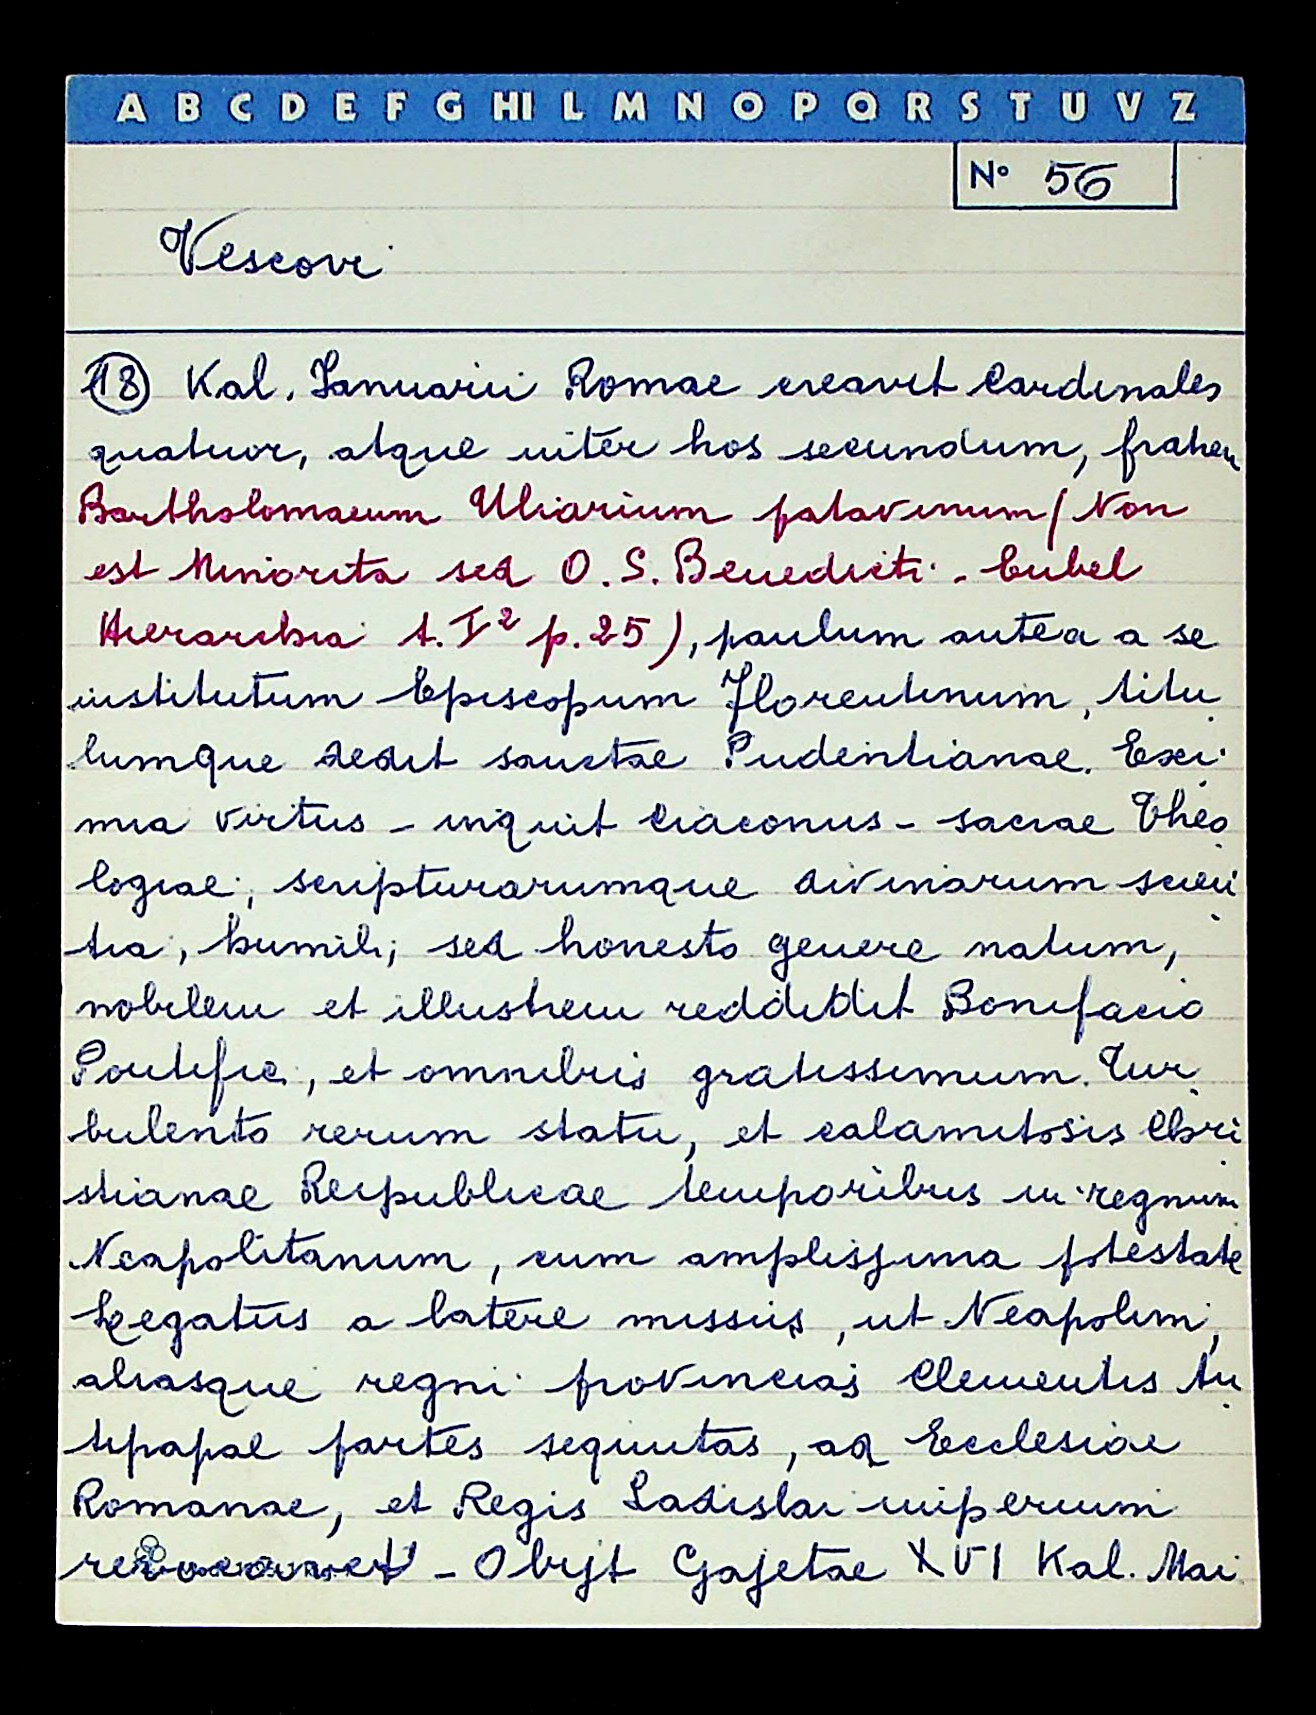 A B C D E F G HI L M N O P Q R S T U V Z
N° 56
Vescovi
18 Kal. Januarii Romae creavit Cardinales
quatuor, atque inter hos secundum, fratrem
Bartholomaeum Uliarium patavinum (Non
est Minorita sed O. S. Benedicti - Eubel
Hierarchia t. I² p. 25), paulum antea a se
institutum Episcopum Florentinum, titu
lumque dedit sanctae Pudentianae. Exi
mia virtus - inquit Ciaconus - sacrae Theo
logiae, scripturarumque divinarum scien
tia, humili, sed honesto genere natum,
nobilem et illustrem reddidit Bonifacio
Pontifici, et omnibus gratissimum. Tur
bulento rerum statu, et calamitosis Chri
stianae Reipublicae temporibus in regnum
Neapolitanum, cum amplissima potestate
Legatus a latere missus, ut Neapolim,
aliasque regni provincias Clementis An
tipapae partes sequutas, ad Ecclesiae
Romanae, et Regis Ladislai imperium
revocaret - Obijt Gajetae XVI Kal. Mai